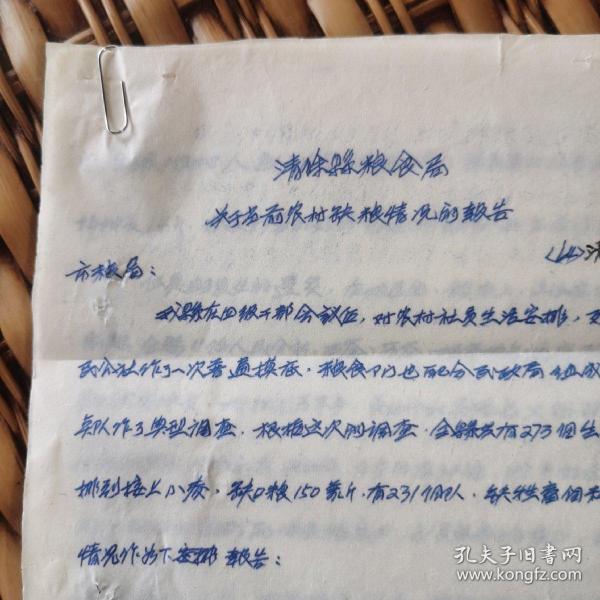 清徐縣粮食局
关于当前农村缺粮情况的報告
(64)清
市粮局:
我縣在四级干部会議后,对农村社员生活安排,又
民公社作了一次普遍摸底,粮食部门也配合民政局组成
队作了典型調查,根据这次的調查,全縣共有273個生
排到接上小麥,缺口粮150萬斤,有2317
情况作如下安排報告:
孔夫子旧書网
www.kongfz.com